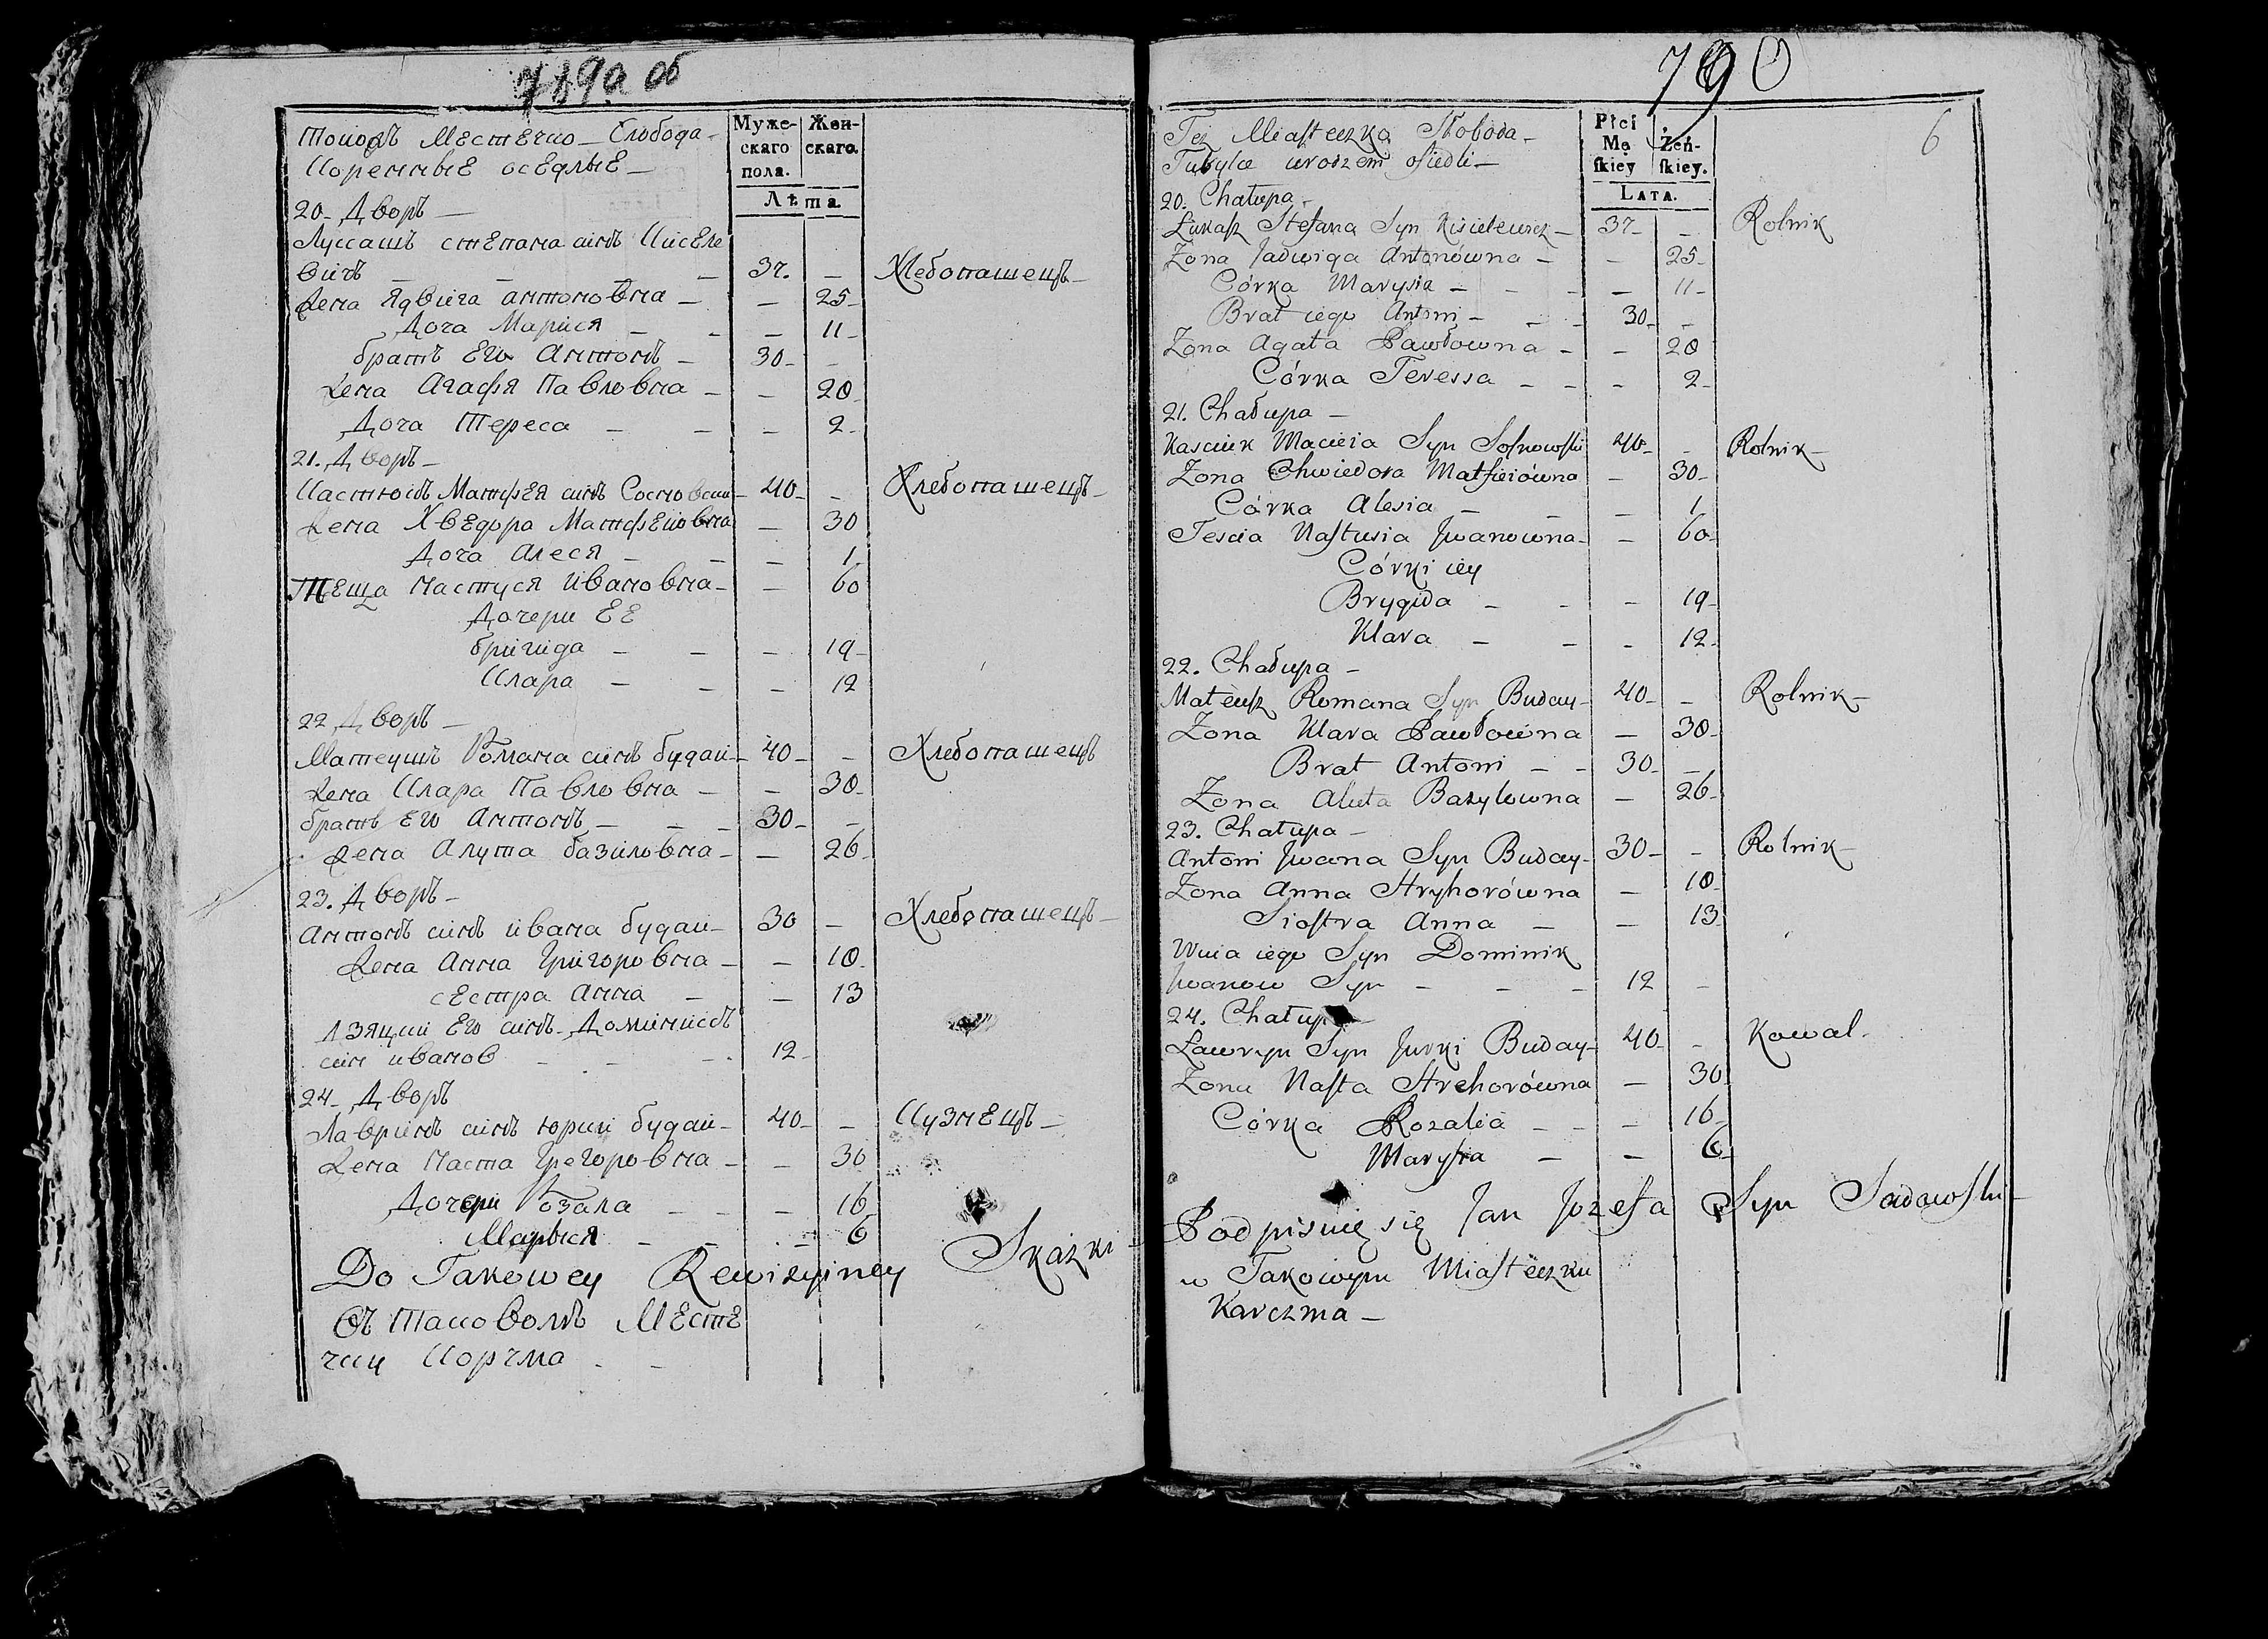 789а об
Мужескаго пола.
Женскаго
Лѣта
Местечко Слобода
Коренные оседлые
20. Дворъ
Лукашъ степана синъ Киселе
вичъ 37. Хлебопашецъ
Жена Ядвига антоновна 25
Доча Марися 11
братъ Его Антонъ 30
Жена Агафя Павловна 20
Доча Тереса 2
21. Дворъ
Кастюкъ Матфея синъ Сосновски 40 Хлебопашецъ
Жена Хведора Матфеиовна 30
Доча алеся 1
Теща Настуся ивановна 60
Дочери ЕЕ
бригида 19
Клара 12
22 Дворъ
Матеушъ Романа синъ будаи 40 Хлебопашецъ
Жена Клара Павловна 30
братъ Его Антонъ 30
Жена Алута базиловна 26
23. Дворъ
Антонъ синъ ивана будаи 30 Хлебопашецъ
Жена Анна Григоровна 10
сестра Анна 13
Его синъ Доминикъ
син иванов 12
24 Дворъ
Лавринъ синъ юрки будаи 40 Кузнецъ
Жена Наста Грегоровна 30
Дочери Розала 16
Марыся 6
Do Takowey Rewizyiney Skazki
Въ таковомъ Месте
чку Корчма
790
6
Płci Męskiey
Żeńskiey.
Lata.
Też Miasteczko Słoboda
Tubylce urodzeni osiedli
20. Chałupa
Łukasz Stefana Syn Kisielewicz 37 Rolnik
Zona Jadwiga Antonówna 25
Córka Marysia 11
Brat iego Antoni 30
Zona Agata Pawłowna 20
Córka Teressa 2
21. Chałupa
Kasciuk Macieia Syn Sosnowski 40 Rolnik
Zona Chwiedora Matfieiówna 30
Córka Alesia 1
Tescia Nastusia Jwanowna 60
Córki iey
Brygida 19
Klara 12
22. Chałupa
Mateusz Romana Syn Buday 40 Rolnik
Zona Klara Pawłowna 30
Brat Antoni 30
Zona Aluta Bazylowna 26
23. Chałupa
Antoni Jwana Syn Buday 30 Rolnik
Zona Anna Hryhorówna 10
Siostra Anna 13
Wuia iego Syn Dominik
Jwanow Syn 12
24. Chałupa
Ławryn Syn Jurki Buday 40 Kowal
Zona Nasta Hrehorówna 30
Córka Rozalia 16
Marysia 6
Podpisuię się Jan Jozefa Syn Sadowski
w Takowym Miasteczku
Karczma